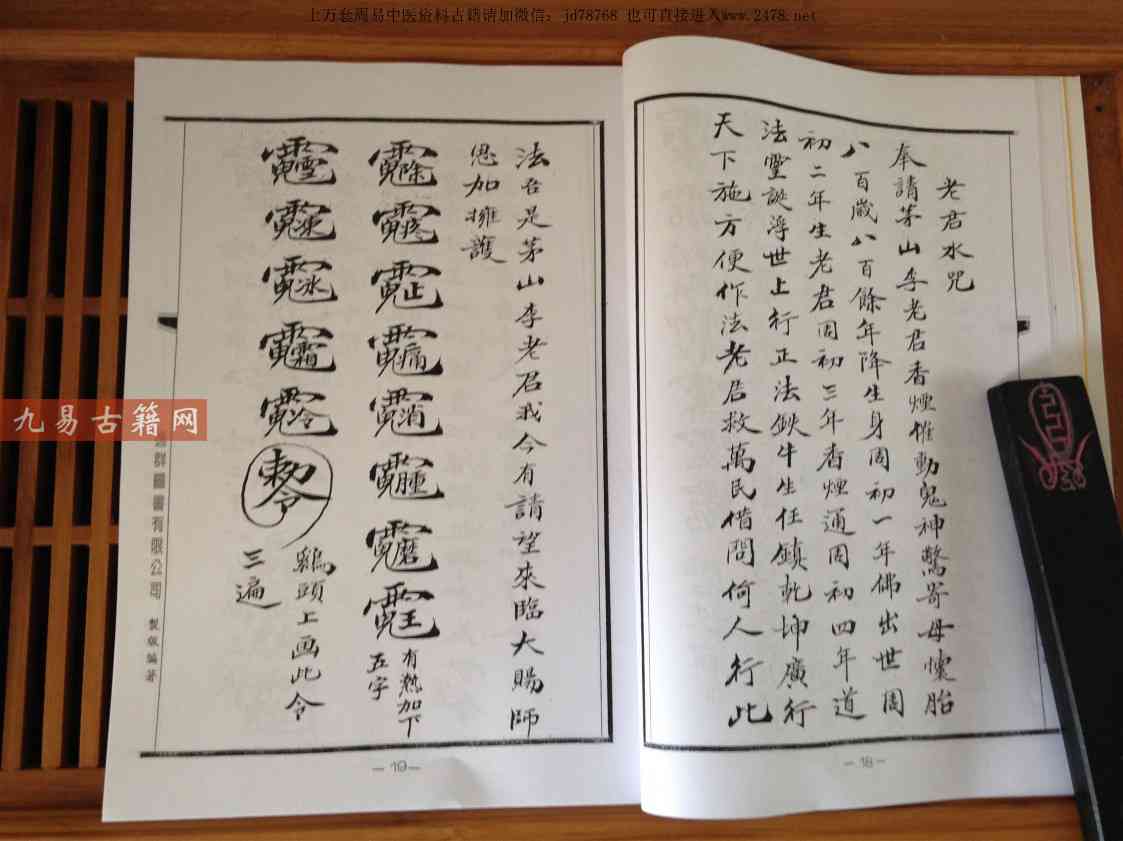 上万套周易中医资料古籍请加微信：jd78768 也可直接进入www.2478.net
老君水咒
奉請茅山李老君香煙惟動鬼神驚寄母懷胎
八百歲八百餘年降生身周初一年佛出世周
初二年生老君周初三年香煙通周初四年道
法靈誕浮世上行正法鉄牛生任鎮乾坤廣行
天下施方便作法老君救萬民借問何人行此
-18-
法召是茅山李老君我今有請望來臨大賜師
恩加擁護
有熱加下
五字
勅令
鷄頭上画此令
三遍
-19-
群圖書有限公司 製版編著
九易古籍网